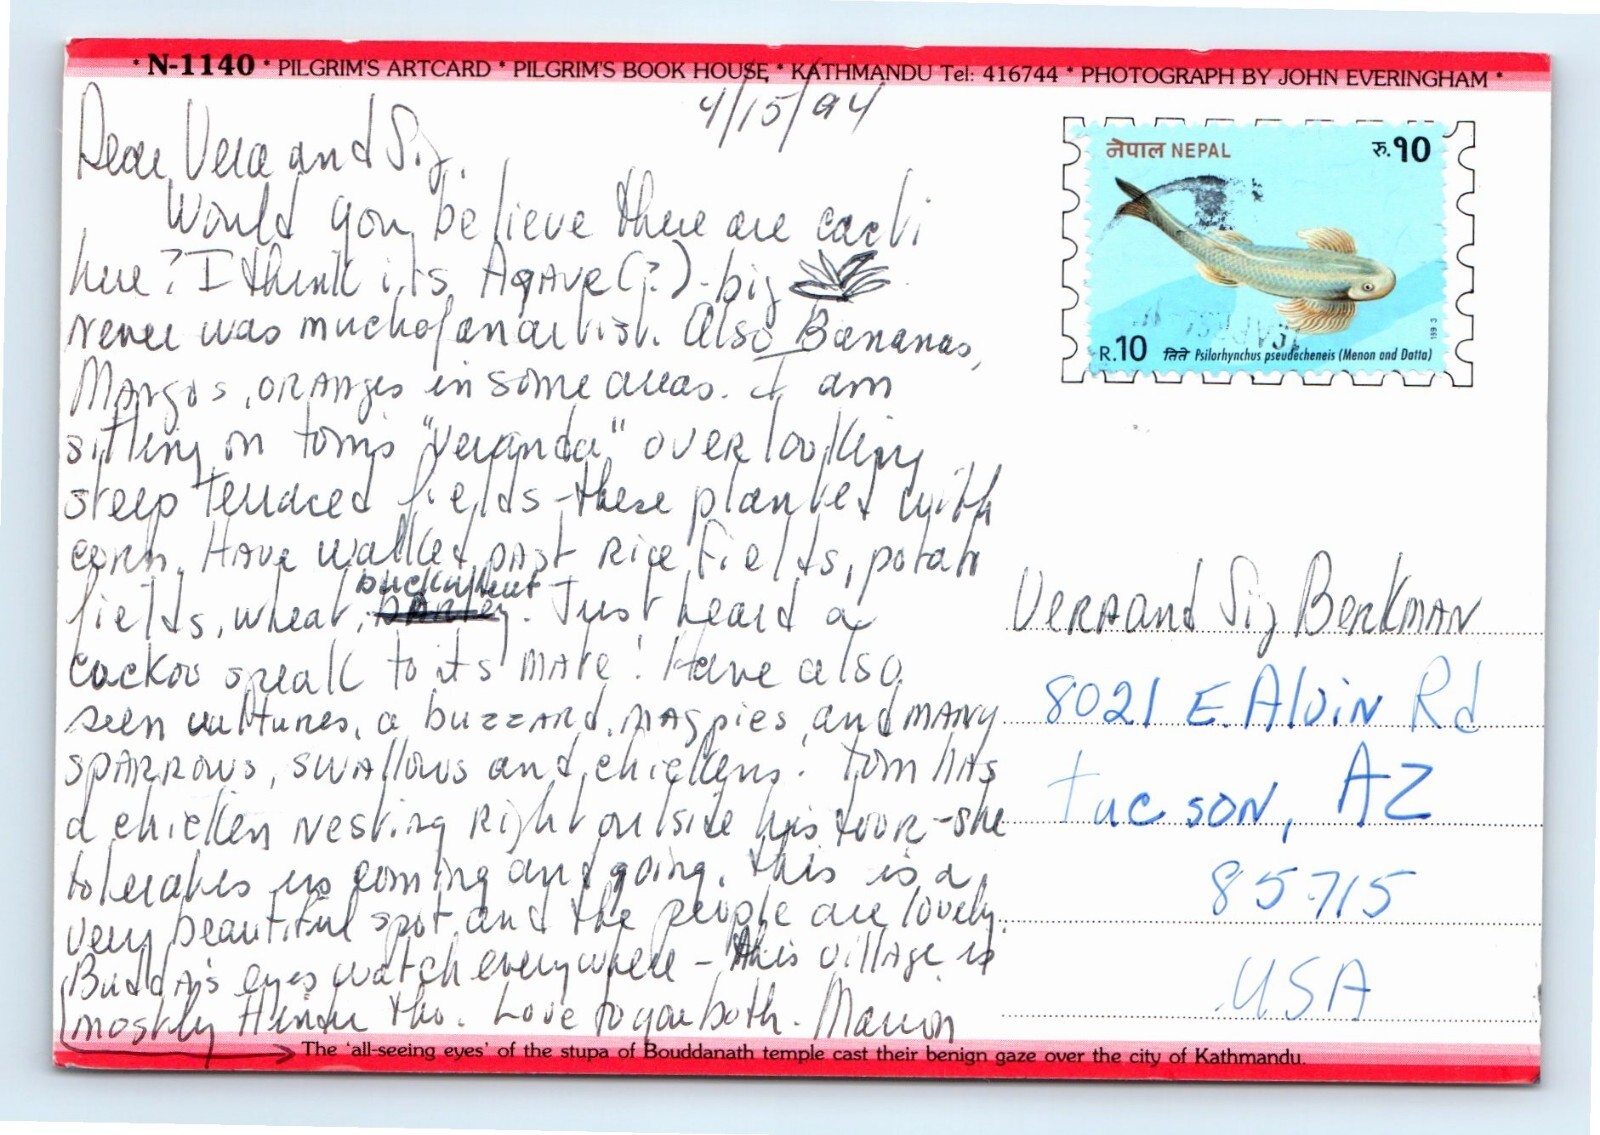 * N-1140 * PILGRIM'S ARTCARD * PILGRIM'S BOOK HOUSE, * KATHMANDU Tel: 416744 * PHOTOGRAPH BY JOHN EVERINGHAM *
4/15/94
Dear Vera and Sig.
Would you believe there are cacti
here? I think its Agave (?) - big
never was much of an artist. Also Bananas,
Mangos, oranges in some areas. I am
sitting on Tom's "veranda" overlooking
steep terraced fields - these planted with
corn. Have walked past rice fields, potato
fields, wheat, buckwheat barley. Just heard a
cuckoo speak to its mate! Have also
seen vultures, a buzzard, magpies, and many
sparrows, swallows and chickens! Tom has
a chicken nesting right outside his door - she
tolerates us coming and going. This is a
very beautiful spot and the people are lovely.
Budda's eyes watch everywhere - this village is
mostly Hindu tho. Love to you both. Marion
The 'all-seeing eyes' of the stupa of Bouddanath temple cast their benign gaze over the city of Kathmandu.
नेपाल NEPAL रु. १०
1993
R.10 तिते Psilorhynchus pseudecheneis (Menon and Datta)
Vera and Sig Berkman
8021 E. Alvin Rd
Tucson, AZ
85715
USA